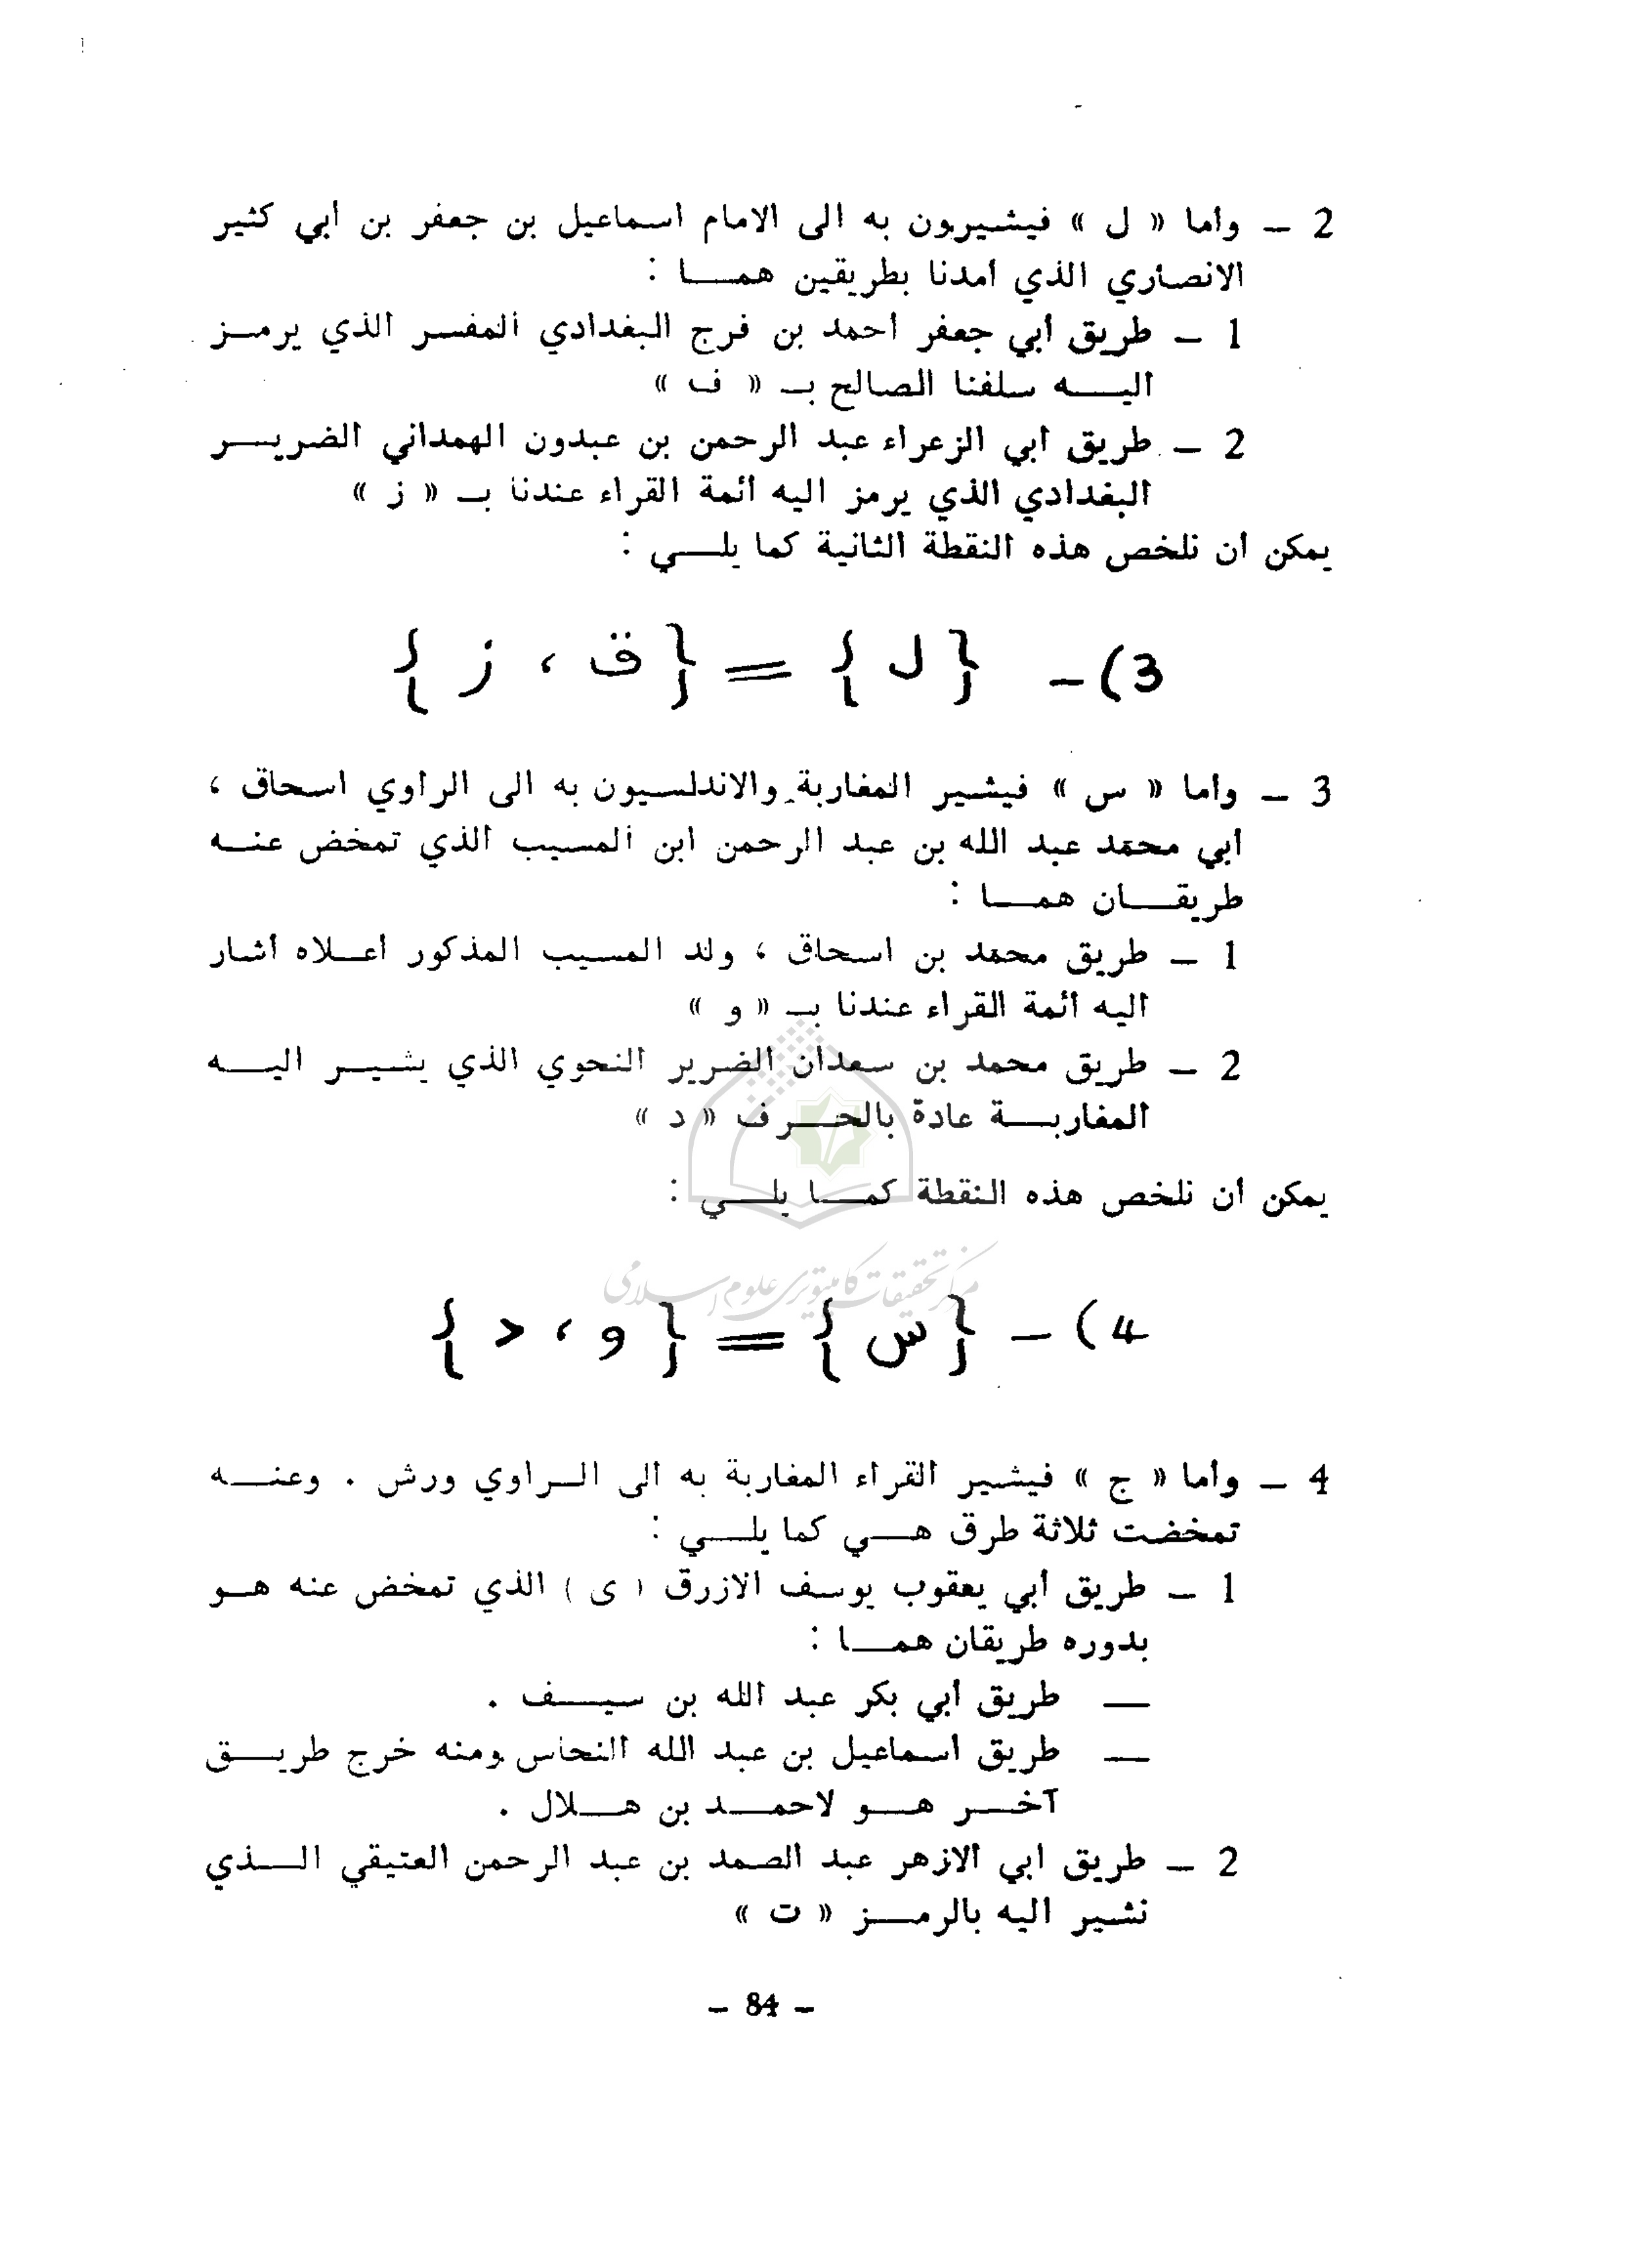 2 ــ وأما « ل » فيشيرون به الى الامام اسماعيل بن جعفر بن أبي كثير
الانصاري الذي أمدنا بطريقين همـــا :
1 ــ طريق أبي جعفر أحمد بن فرج البغدادي المفسر الذي يرمــز
اليـــه سلفنا الصالح بـ « ف »
2 ــ طريق أبي الزعراء عبد الرحمن بن عبدون الهمداني الضريـــر
البغدادي الذي يرمز اليه أئمة القراء عندنا بـ « ز »
يمكن أن نلخص هذه النقطة الثانية كما يلـــي :
3) ــ {ل} = {ق ، ز}
3 ــ وأما « س » فيشير المغاربة والاندلسيون به الى الراوي اسحاق ،
أبي محمد عبد الله بن عبد الرحمن ابن المسيب الذي تمخض عنــه
طريقـــان همـــا :
1 ــ طريق محمد بن اسحاق ، ولد المسيب المذكور أعــلاه أشار
اليه أئمة القراء عندنا بـ « و »
2 ــ طريق محمد بن سعدان الضرير النحوي الذي يشيــر اليـــه
المغاربـــة عادة بالحـــرف « د »
يمكن أن نلخص هذه النقطة كمـــا يلـــي :
مركز تحقيقات كامپيوتری علوم اسلامی
4) ــ {س} = {و ، د}
4 ــ وأما « ج » فيشير القراء المغاربة به الى الــراوي ورش . وعنـــه
تمخضت ثلاثة طرق هـــي كما يلـــي :
1 ــ طريق أبي يعقوب يوسف الازرق ( ى ) الذي تمخض عنه هــو
بدوره طريقان همـــا :
ــ طريق أبي بكر عبد الله بن سيـــف .
ــ طريق اسماعيل بن عبد الله النحاس ومنه خرج طريـــق
آخـــر هـــو لاحمـــد بن هـــلال .
2 ــ طريق أبي الازهر عبد الصمد بن عبد الرحمن العتيقي الـــذي
نشير اليه بالرمـــز « ت »
– 84 –